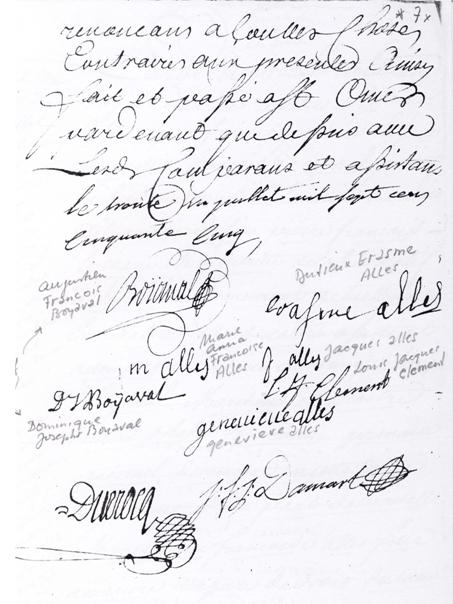 * 7 *
renoncans a Touttes Choses
Contraires aux presentes Ainsy
fait et passé a St Omer
pardevant que dessus avec
Lesds Comparans et assistans
le trente un juillet mil sept cens
Cinquante Cinq
augustien
Francois
Boyaval
Boüaval
Durieux Erasme
Alles
erasme alles
m alles
Marie
anna
Francoise
Alles
J alles
Jacques alles
L. J. Clement
Louis Jacques
Clement
D J Boÿaval
Dominique
Josephe Boyaval
genevieve alles
genevieve alles
Ducrocq
J. F. J. Damart